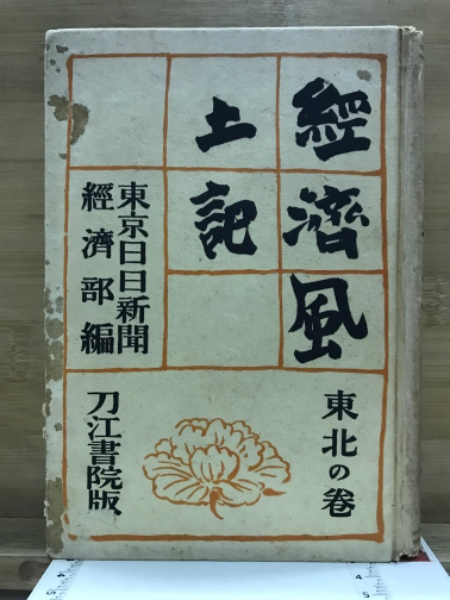 經濟風
土記
東北の卷
東京日日新聞
經濟部編
刀江書院版